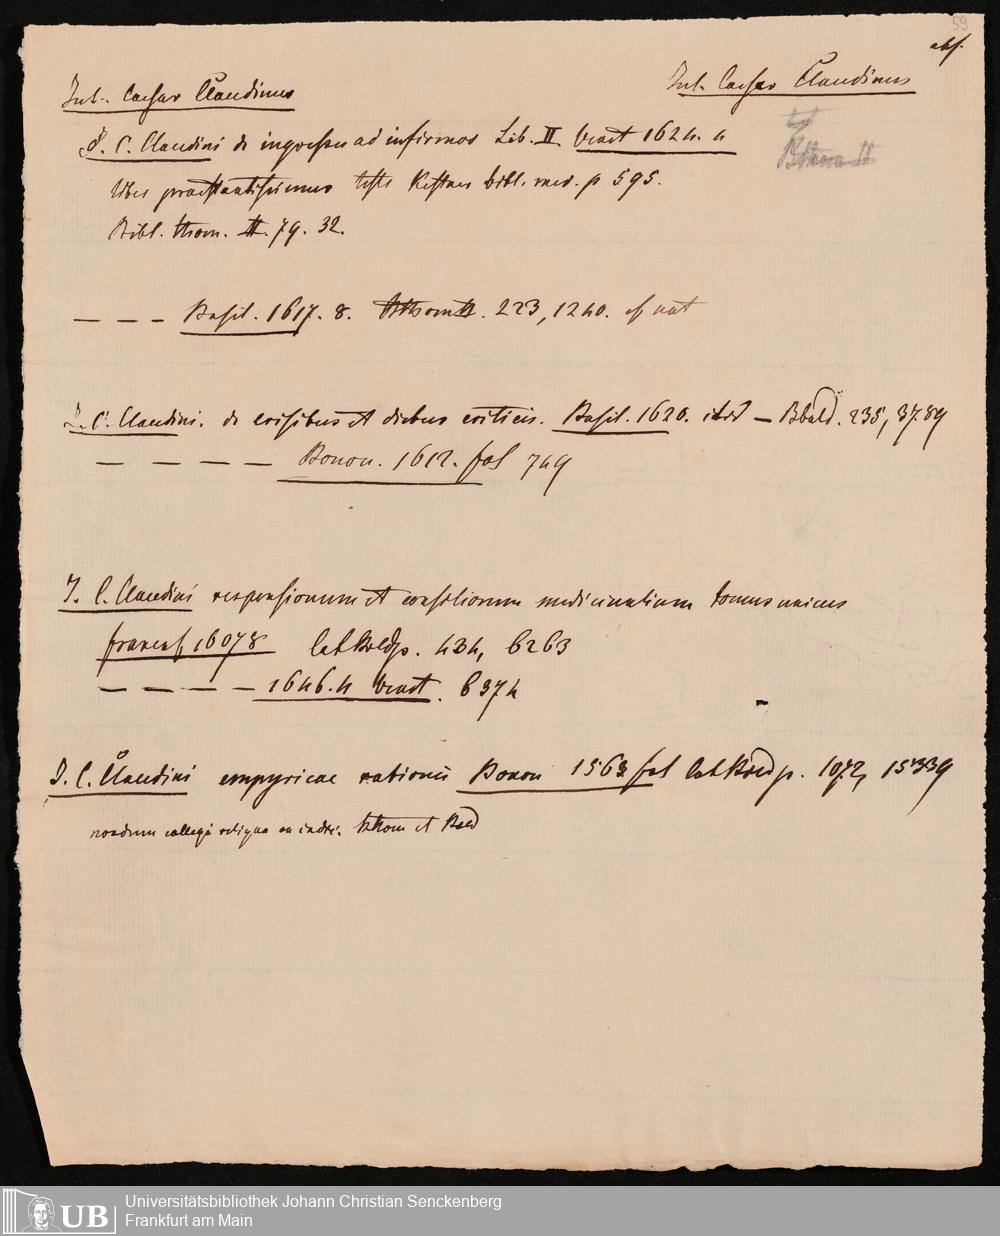 59
abs.
Jul. Caesar Claudinus
Jul. Caesar Claudinus
J. C. Claudini de ingressu ad infirmos Lib. II. 1624. 4
Bthom II
liber praestantissimus teste Kestner bibl. med. p 595.
Bibl. thom. II. 79. 32.
— — — Basil. 1617. 8. Bthom II. 223, 1240.
J. C. Claudini. de crisibus et diebus criticis. Basil. 1620. — Bbald. 235, 3789
— — — — Bonon. 1612. fol 749
J. C. Claudini responsionum et consiliorum medicinalium tomus unicus
francof, 1607 8 cat p. 434, 6263
— — — — 1646. 4 . 6374
J. C. Claudini empyricae rationis Bonon 1563 fol cat p. 1072, 15339
nondum collegi reliqua ex indic. bthom et Bald
Universitätsbibliothek Johann Christian Senckenberg
Frankfurt am Main
UB